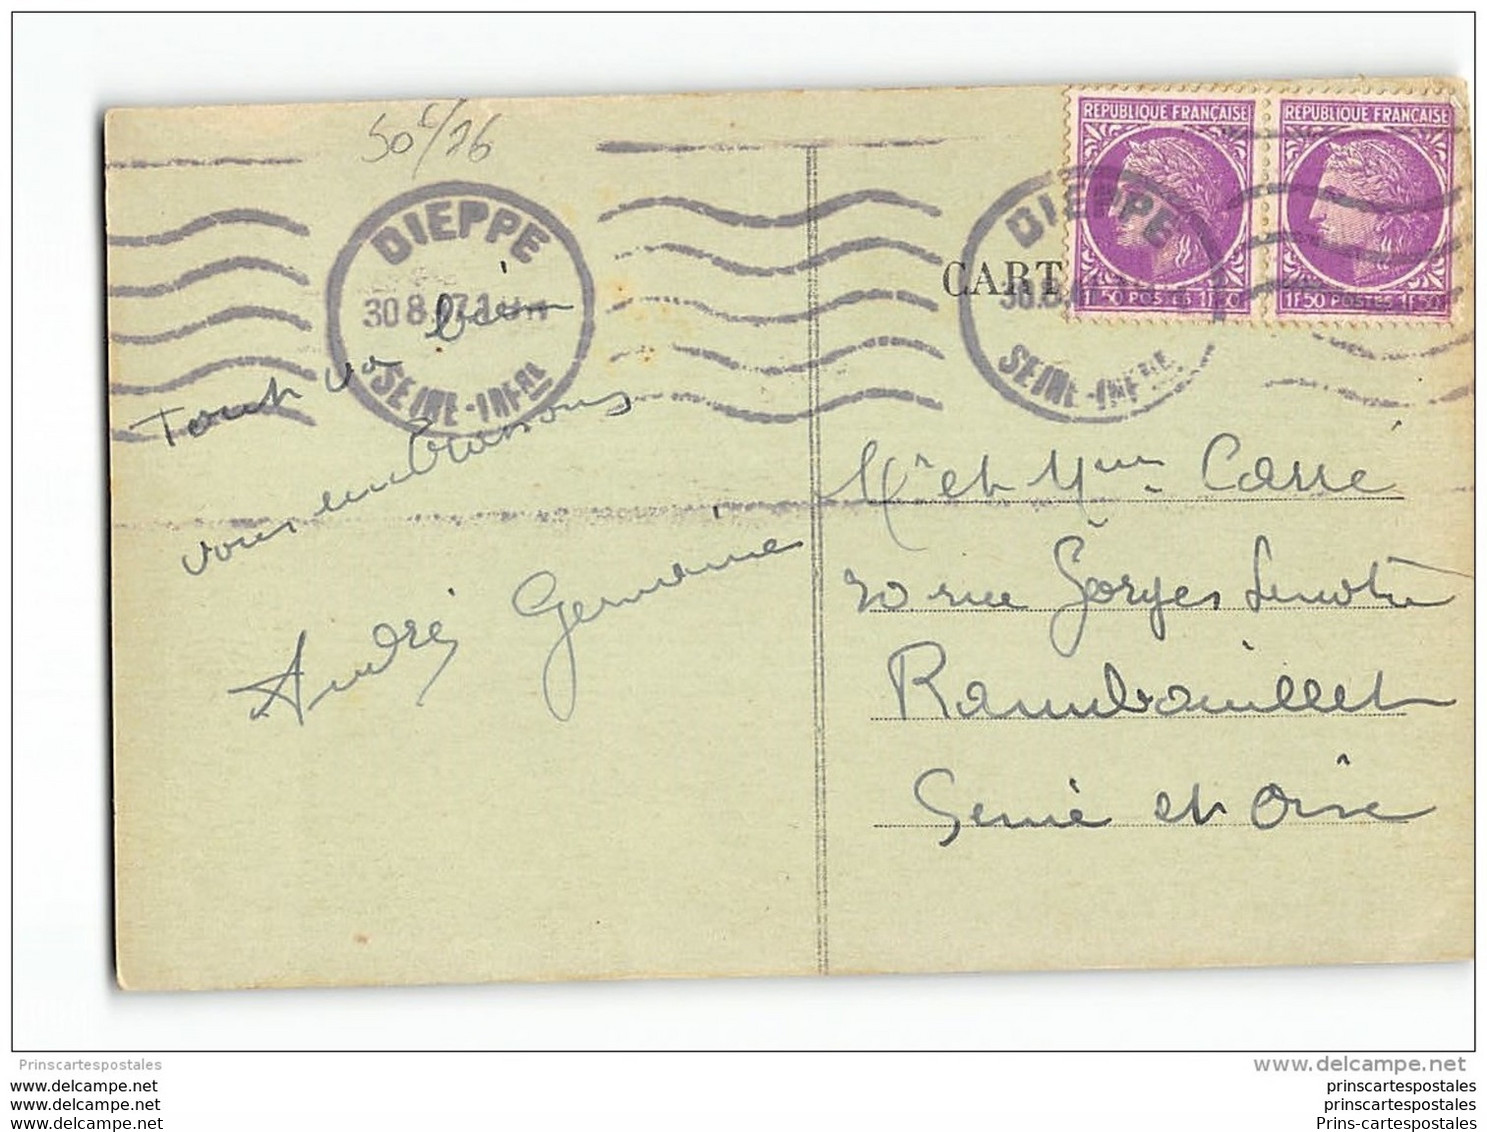 50c/26
REPUBLIQUE FRANÇAISE REPUBLIQUE FRANÇAISE
1F50 POSTES 1F50 1F50 POSTES 1F50
DIEPPE
30 8
SEINE-INFRE
DIEPPE
30.8
SEINE-INFRE
CART
Tout va bien
vous embrassons
André Germaine
Mr et Mme Carré
20 rue Gorges Lenotre
Rambouillet
Seine et Oise
Prinscartespostales
www.delcampe.net
www.delcampe.net
www.delcampe.net
www.delcampe.net
prinscartespostales
prinscartespostales
Prins-cartespostales